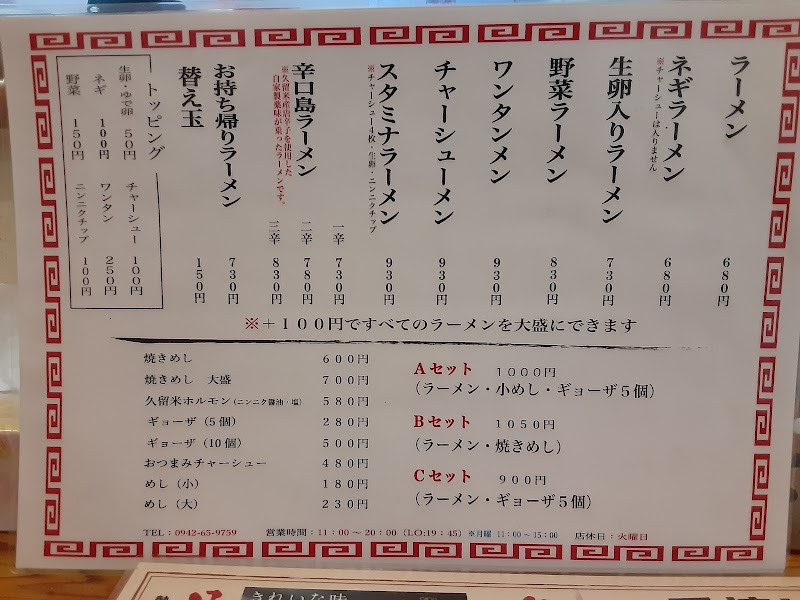 ラーメン 680円
ネギラーメン 680円
※チャーシューは入りません
生卵入りラーメン 730円
野菜ラーメン 830円
ワンタンメン 930円
チャーシューメン 930円
スタミナラーメン 930円
※チャーシュー4枚・生卵・ニンニクチップ
辛口島ラーメン
一辛 730円
二辛 780円
三辛 830円
※久留米産唐辛子を使用した
自家製薬味が乗ったラーメンです。
お持ち帰りラーメン 730円
替え玉 150円
トッピング
生卵・ゆで卵 50円
チャーシュー 100円
ネギ 100円
ワンタン 250円
野菜 150円
ニンニクチップ 100円
※+100円ですべてのラーメンを大盛にできます
焼きめし 600円
焼きめし 大盛 700円
久留米ホルモン(ニンニク醤油・塩) 580円
ギョーザ(5個) 280円
ギョーザ(10個) 500円
おつまみチャーシュー 480円
めし(小) 180円
めし(大) 230円
Aセット 1000円
(ラーメン・小めし・ギョーザ5個)
Bセット 1050円
(ラーメン・焼きめし)
Cセット 900円
(ラーメン・ギョーザ5個)
TEL:0942-65-9759 営業時間:11:00~20:00(LO:19:45)※月曜 11:00~15:00 店休日:火曜日
きれいな味